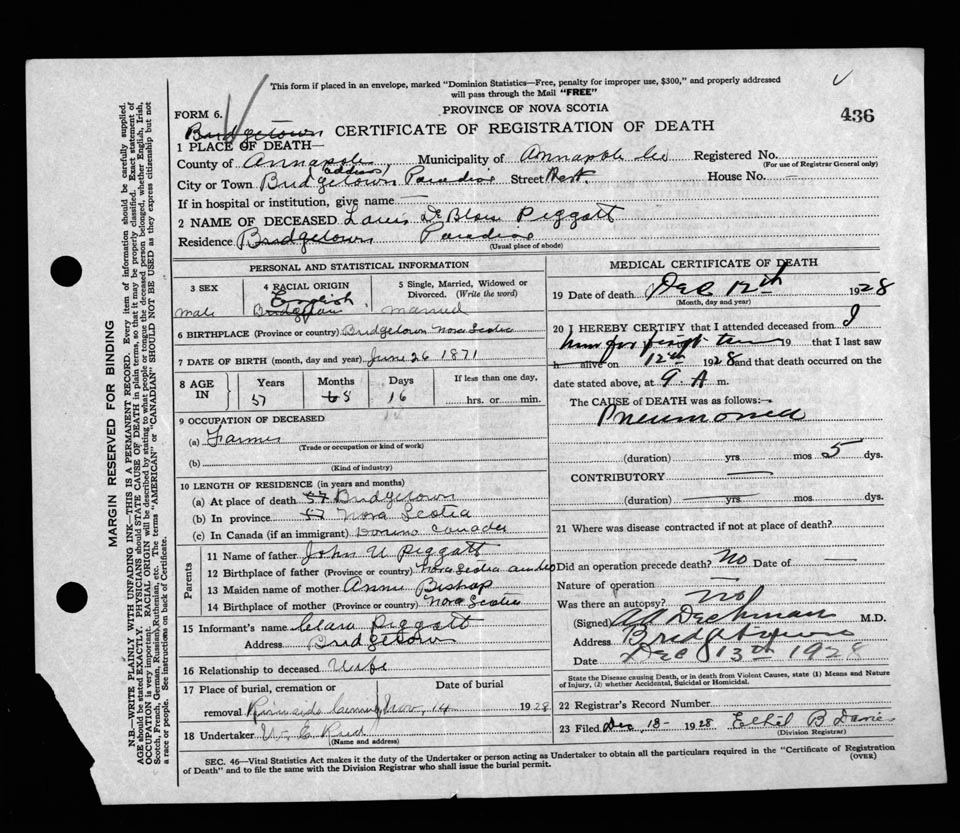 This form if placed in an envelope, marked "Dominion Statistics—Free, penalty for improper use, $300," and properly addressed
will pass through the Mail "FREE"
FORM 6.
PROVINCE OF NOVA SCOTIA
436
Bridgetown
CERTIFICATE OF REGISTRATION OF DEATH
1 PLACE OF DEATH—
County of Annapolis Municipality of Annapolis Co Registered No.
(For use of Registrar General only)
(address)
City or Town Bridgetown Paradise Street West House No. —
If in hospital or institution, give name —
2 NAME OF DECEASED Louis De Blois Piggott
Residence Bridgetown Paradise
(Usual place of abode)
PERSONAL AND STATISTICAL INFORMATION
3 SEX
male
4 RACIAL ORIGIN
English
5 Single, Married, Widowed or
Divorced. (Write the word)
married
6 BIRTHPLACE (Province or country) Bridgetown Nova Scotia
7 DATE OF BIRTH (month, day and year) June 26 1871
8 AGE
IN
Years
57
Months
5
Days
16
If less than one day,
hrs. or min.
9 OCCUPATION OF DECEASED
(a) Farmer
(Trade or occupation or kind of work)
(b)
(Kind of industry)
10 LENGTH OF RESIDENCE (in years and months)
(a) At place of death 57 Bridgetown
(b) In province 57 Nova Scotia
(c) In Canada (if an immigrant) Canada
Parents
11 Name of father John U Piggott
12 Birthplace of father (Province or country) Nova Scotia
13 Maiden name of mother Annie Bishop
14 Birthplace of mother (Province or country) Nova Scotia
15 Informant's name Clara Piggott
Address Bridgetown
16 Relationship to deceased Wife
17 Place of burial, cremation or
Date of burial
removal 14 1928
18 Undertaker
(Name and address)
MEDICAL CERTIFICATE OF DEATH
19 Date of death Dec 12th 1928
(Month, day and year)
20 I HEREBY CERTIFY that I attended deceased from I
him for first time 19 that I last saw
h alive on 12th 1928 and that death occurred on the
date stated above, at 9 A m.
The CAUSE of DEATH was as follows:—
Pneumonia
(duration) yrs mos 5 dys.
CONTRIBUTORY —
(duration) — yrs — mos dys.
21 Where was disease contracted if not at place of death?
Did an operation precede death? No Date of —
Nature of operation —
Was there an autopsy? no
(Signed) Dechman M.D.
Address Bridgetown
Date Dec 13th 1928
State the Disease causing Death, or in death from Violent Causes, state (1) Means and Nature
of Injury, (2) whether Accidental, Suicidal or Homicidal.
22 Registrar's Record Number
23 Filed Dec 13- 1928 Ethel B Davies
(Division Registrar)
SEC. 46—Vital Statistics Act makes it the duty of the Undertaker or person acting as Undertaker to obtain all the particulars required in the "Certificate of Registration
of Death" and to file the same with the Division Registrar who shall issue the burial permit.
(OVER)
MARGIN RESERVED FOR BINDING
N.B.—WRITE PLAINLY WITH UNFADING INK—THIS IS A PERMANENT RECORD. Every item of information should be carefully supplied.
AGE should be stated EXACTLY. PHYSICIANS should state CAUSE OF DEATH in plain terms, so that it may be properly classified. Exact statement of
OCCUPATION is very important. RACIAL ORIGIN will be described by stating to what people or tongue the deceased person belonged, whether English, Irish,
Scotch, French, German, Russian, Ruthenian, etc. The terms "AMERICAN" or "CANADIAN" SHOULD NOT BE USED as they express citizenship but not
a race or people. See instructions on back of Certificate.